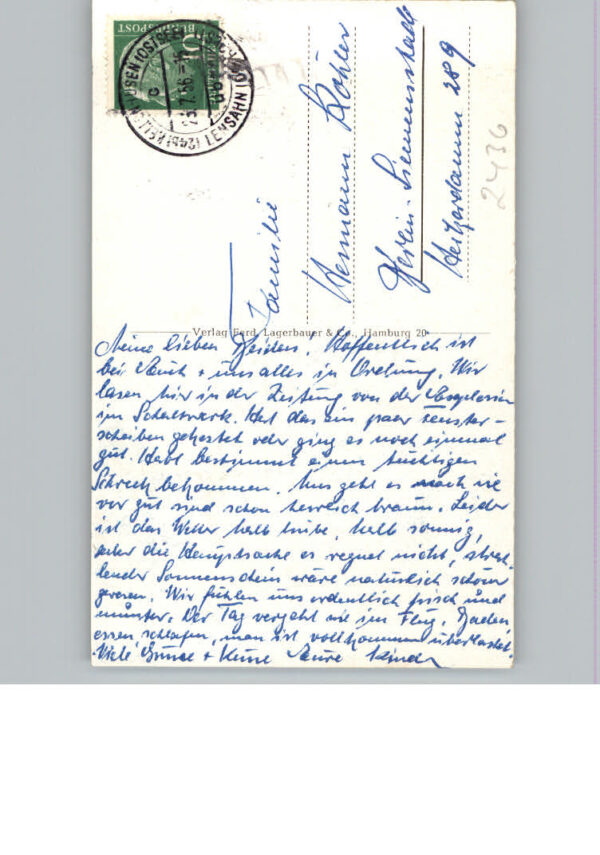 10
BUNDESPOST
(24b) KELLENHUSEN (OSTSEE)
LENSAHN
c
23.7.56
Familie
Hermann Köhler
Berlin-Siemensstadt
289
2436
Verlag Ferd. Lagerbauer & Co., Hamburg 20
Meine lieben Beiden, Hoffentlich ist
bei Euch + uns alles in Ordnung. Wir
lasen hier in der Zeitung von der Explosion
im Schaltwerk. Hat das ein paar Fenster-
scheiben gekostet oder ging es noch einmal
gut. Habt bestimmt einen tüchtigen
Schreck bekommen. Uns geht es nach wie
vor gut sind schon herrlich braun. Leider
ist das Wetter halb trübe, halb sonnig,
aber die Hauptsache es regnet nicht, strah-
lender Sonnenschein wäre natürlich schöner
gewesen. Wir fühlen uns ordentlich frisch und
munter. Der Tag vergeht wie im Flug. Baden
essen, schlafen, man ist vollkommen überlastet.
Viele Grüsse + Küsse Eure Kinder